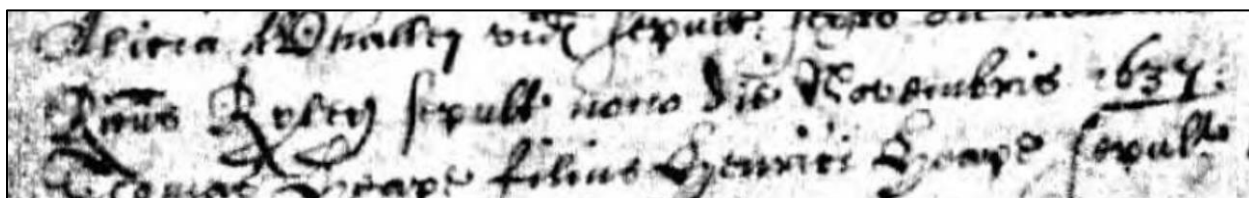 Alicia Whalley vid sepult: sexto die
Ricus Ryley sepult nono die Novembris 1637:
Thomas Heape filius Henrici Heape sepult